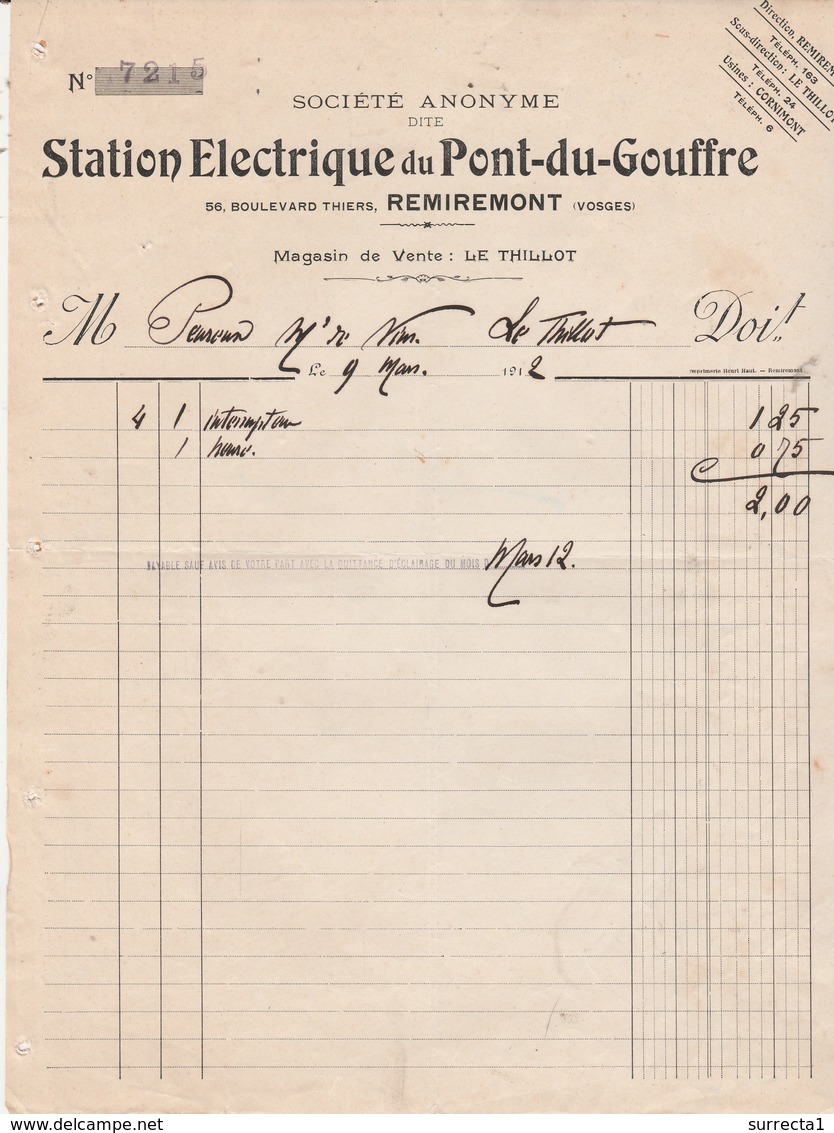 Direction, REMIREM
TÉLÉPH. 163
Sous-direction: LE THILLOT
TÉLÉPH. 24
Usines: CORNIMONT
TÉLÉPH. 6
N° 7215
SOCIÉTÉ ANONYME
DITE
Station Electrique du Pont-du-Gouffre
56, BOULEVARD THIERS, REMIREMONT (VOSGES)
Magasin de Vente: LE THILLOT
M Md de Vins. Le Thillot Doit
Le 9 Mars. 1912
Imprimerie Henri Haut. — Remiremont
4 1 interrupteur 1 25
1 heure. 0 75
2,00
PAYABLE SAUF AVIS DE VOTRE PART AVEC LA QUITTANCE D'ÉCLAIRAGE DU MOIS D Mars 12.
surrecta1
delcampe.net